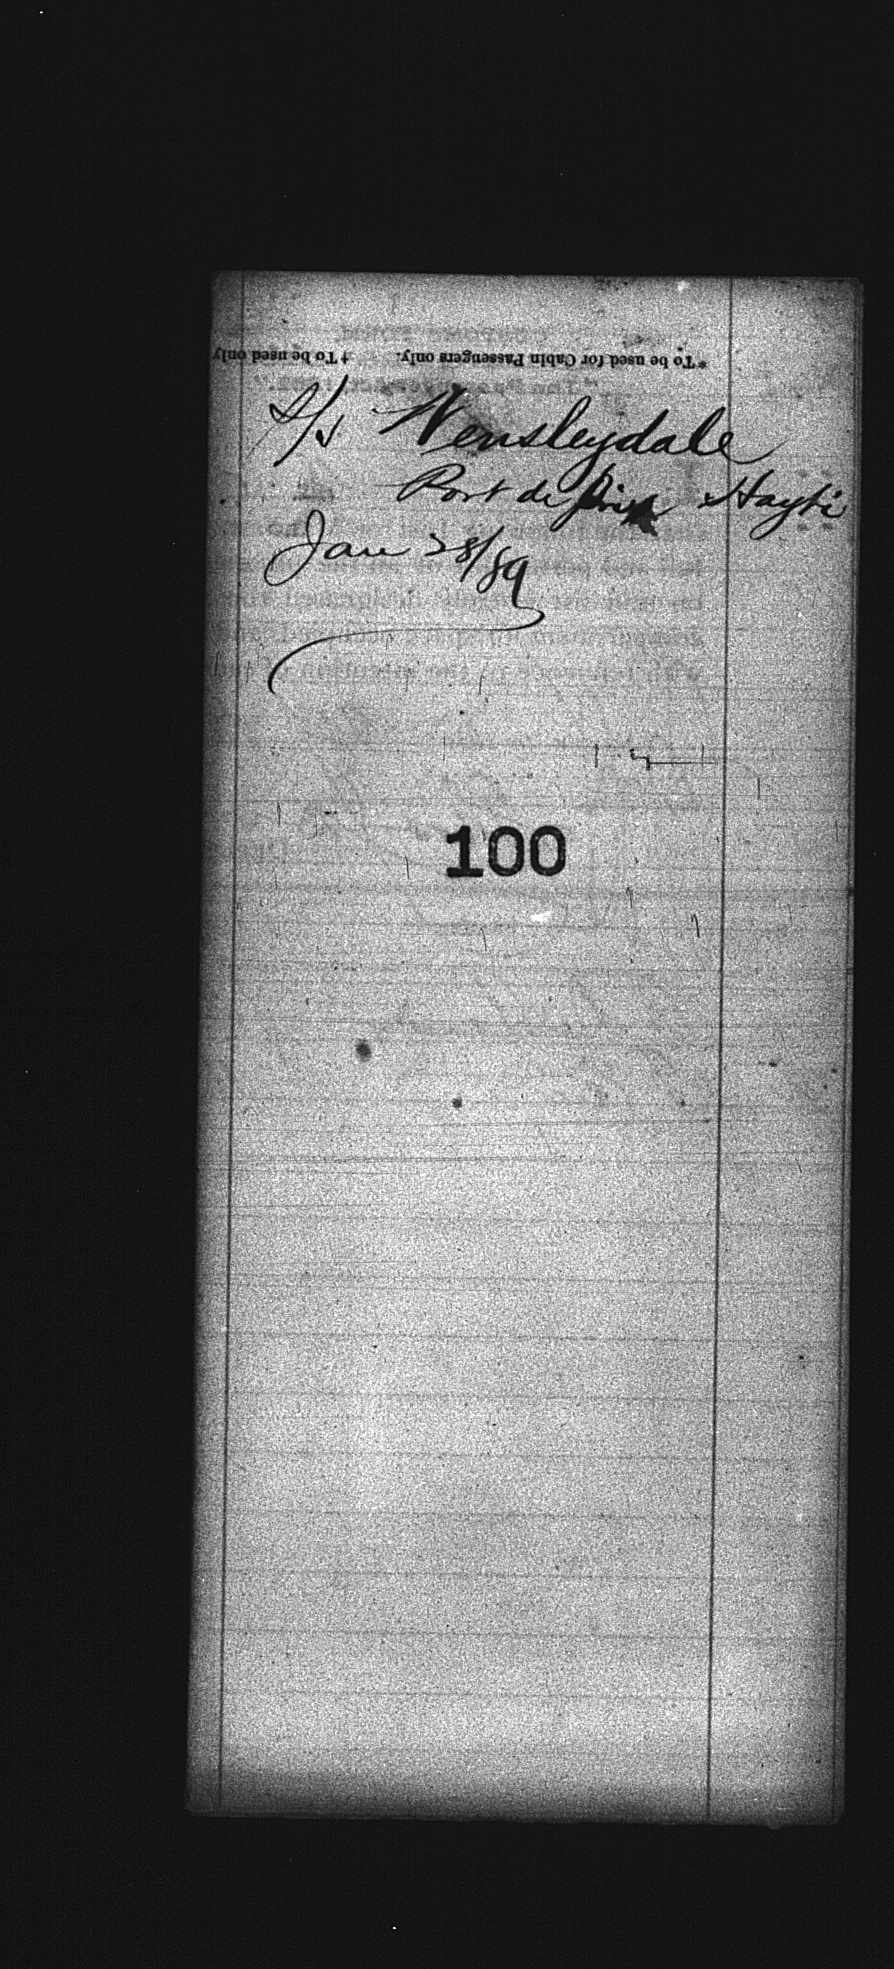 *To be used for Cabin Passengers only. † To be used only
S/S Wensleydale
Port de Hayti
Jan 28/89
100